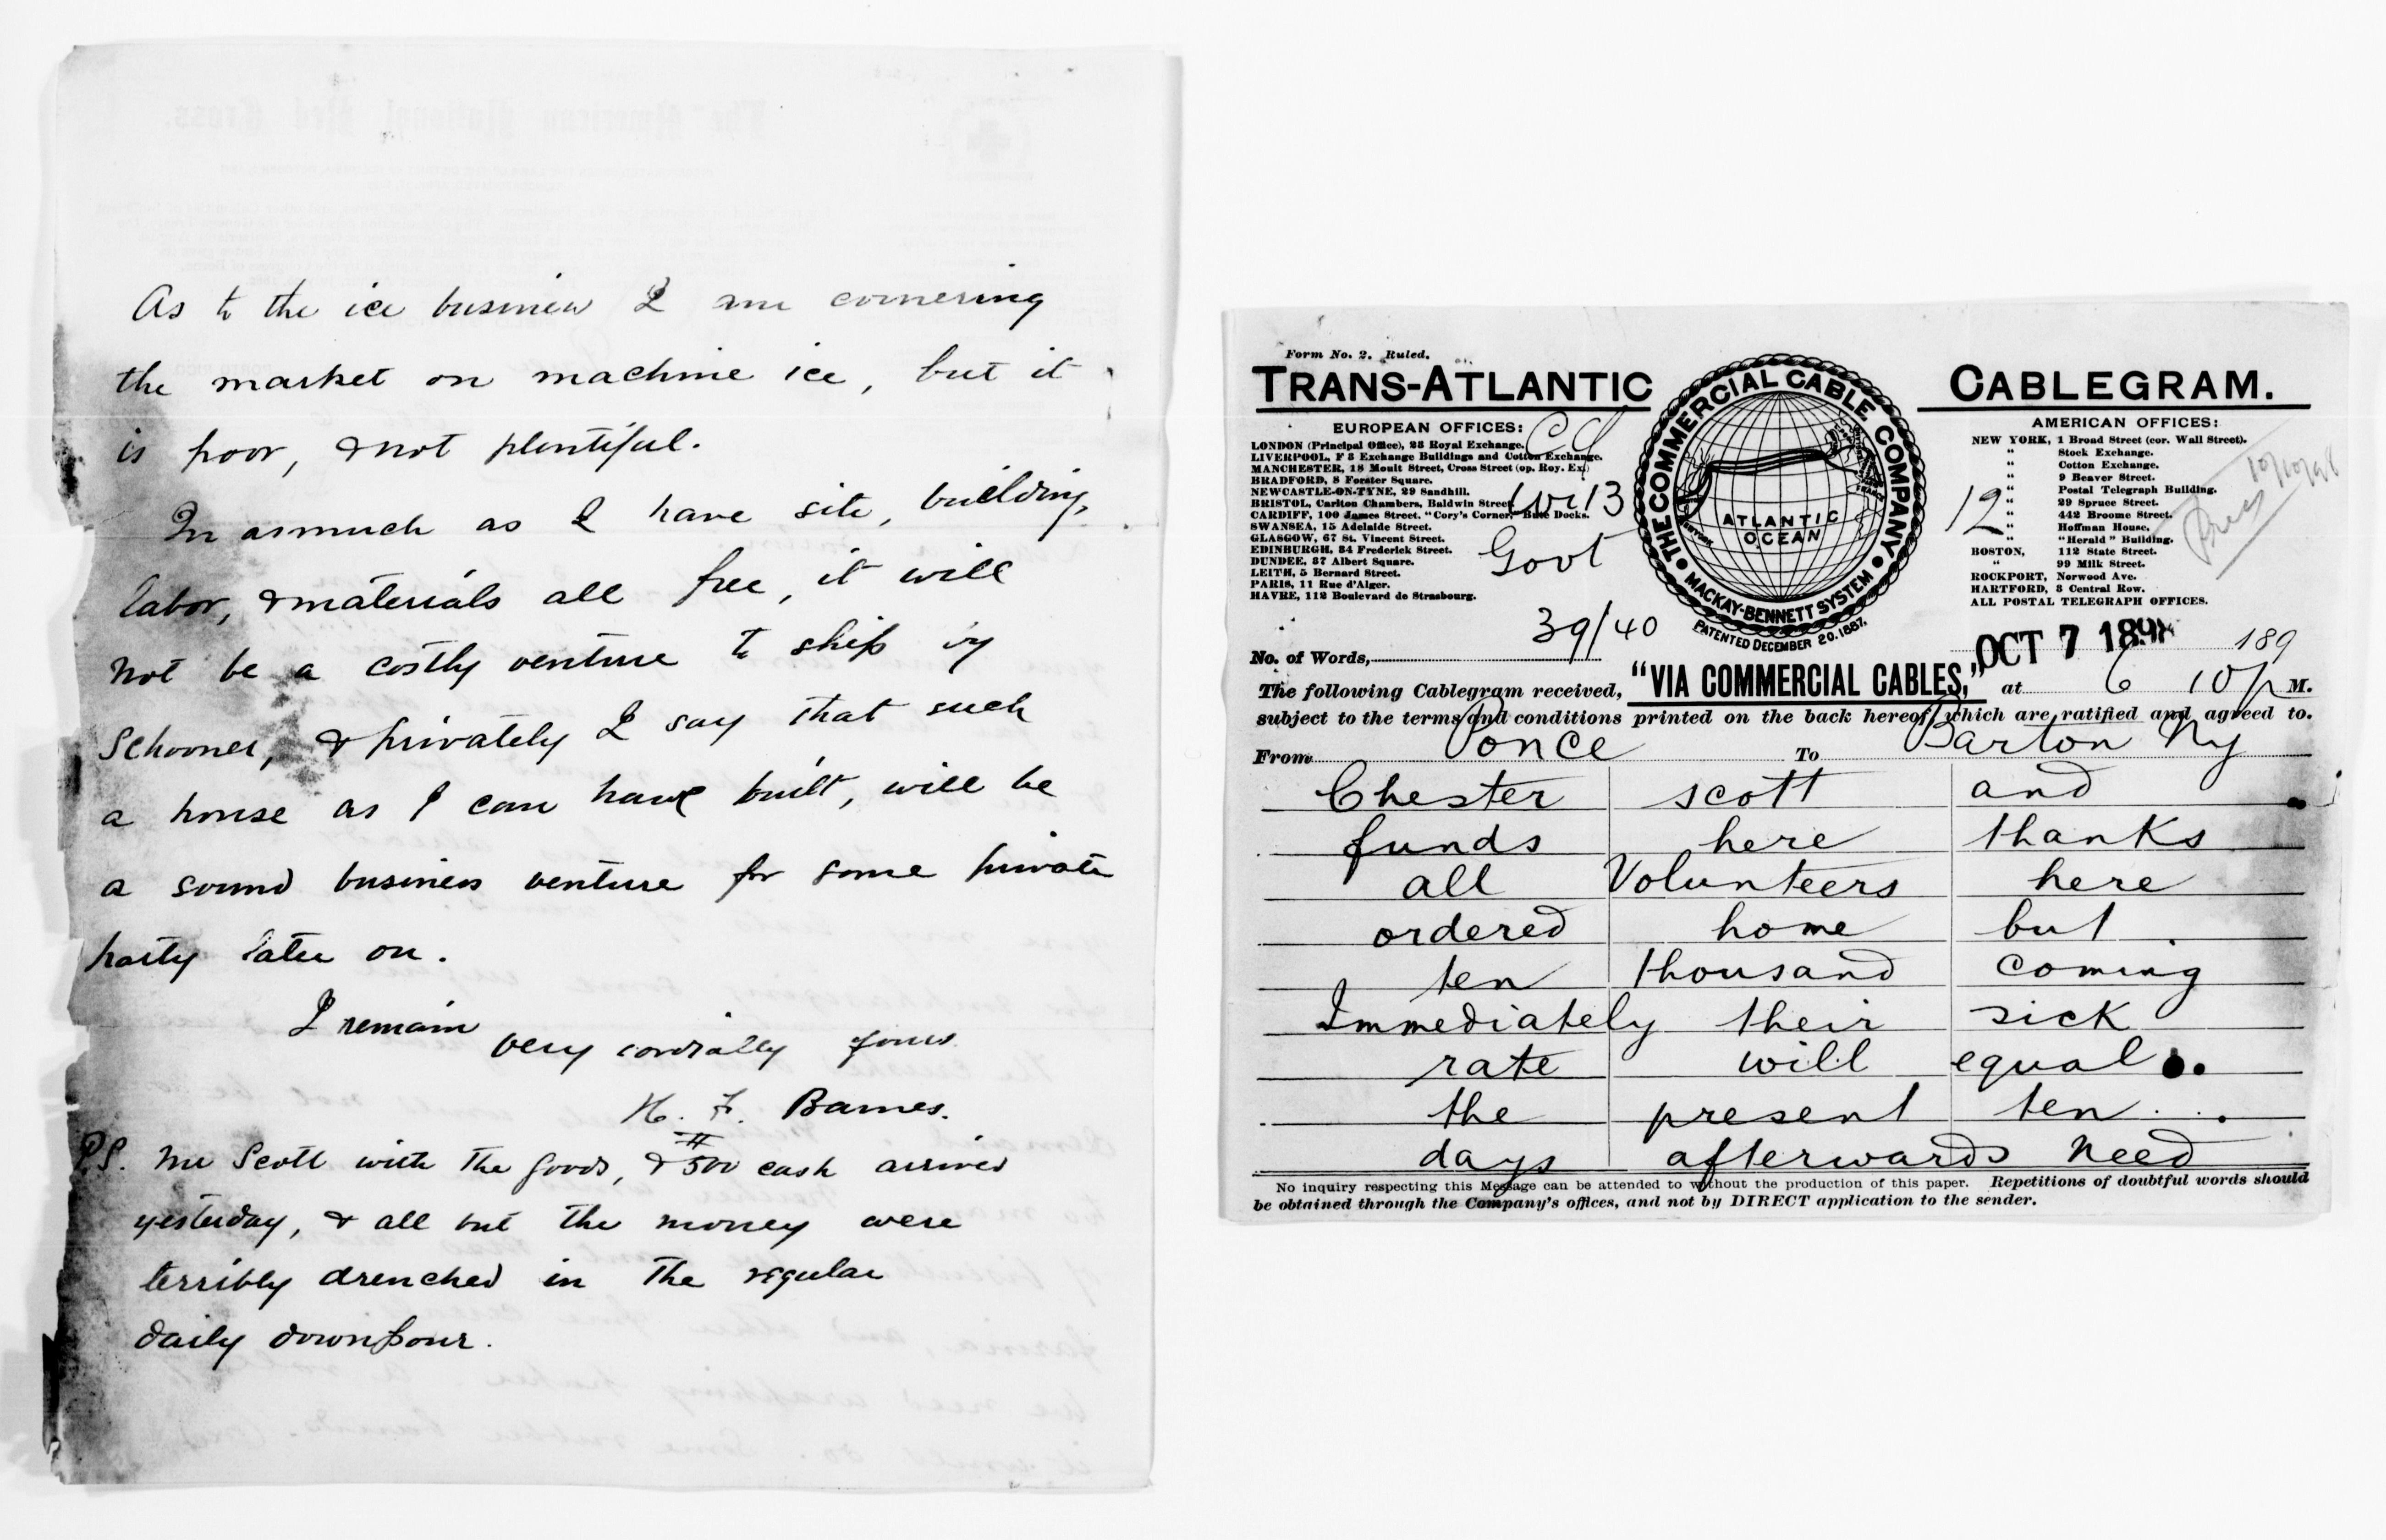 As to the ice business I am cornering
the market on machine ice, but it
is poor, & not plentiful.
In asmuch as I have site, building,
labor, & materials all free, it will
not be a costly venture to ship by
Schooner, & privately I say that such
a house as I can have built, will be
a sound business venture for some private
party later on.
I remain
very cordially yours
H. F. Barnes.
P.S. Mr Scott with the goods, & $500 cash arrived
yesterday, & all but the money were
terribly drenched in the regular
daily downpour.
Form No. 2. Ruled.
TRANS-ATLANTIC CABLEGRAM.
THE COMMERCIAL CABLE COMPANY
MACKAY-BENNETT SYSTEM
ATLANTIC
OCEAN
PATENTED DECEMBER 20. 1887.
EUROPEAN OFFICES:
LONDON (Principal Office), 23 Royal Exchange.
LIVERPOOL, F 3 Exchange Buildings and Cotton Exchange.
MANCHESTER, 18 Moult Street, Cross Street (op. Roy. Ex.)
BRADFORD, 8 Forster Square.
NEWCASTLE-ON-TYNE, 29 Sandhill.
BRISTOL, Carlton Chambers, Baldwin Street
CARDIFF, 100 James Street. "Cory's Corner," Bute Docks.
SWANSEA, 15 Adelaide Street.
GLASGOW, 67 St. Vincent Street.
EDINBURGH, 34 Frederick Street.
DUNDEE, 37 Albert Square.
LEITH, 5 Bernard Street.
PARIS, 11 Rue d'Alger.
HAVRE, 112 Boulevard de Strasbourg.
13
Govt
AMERICAN OFFICES:
NEW YORK, 1 Broad Street (cor. Wall Street).
" Stock Exchange.
" Cotton Exchange.
" 9 Beaver Street.
" Postal Telegraph Building.
" 29 Spruce Street.
" 442 Broome Street.
" Hoffman House.
" "Herald" Building.
BOSTON, 112 State Street.
" 99 Milk Street.
ROCKPORT, Norwood Ave.
HARTFORD, 3 Central Row.
ALL POSTAL TELEGRAPH OFFICES.
12
10/10/98
No. of Words, 39/40
OCT 7 1898 189
The following Cablegram received, "VIA COMMERCIAL CABLES," at 6 10 p M.
subject to the terms and conditions printed on the back hereof, which are ratified and agreed to.
From Ponce To Barton Ny
Chester scott and
funds here thanks
all Volunteers here
ordered home but
ten thousand coming
Immediately their sick
rate will equal
the present ten
days afterwards Need
No inquiry respecting this Message can be attended to without the production of this paper. Repetitions of doubtful words should
be obtained through the Company's offices, and not by DIRECT application to the sender.